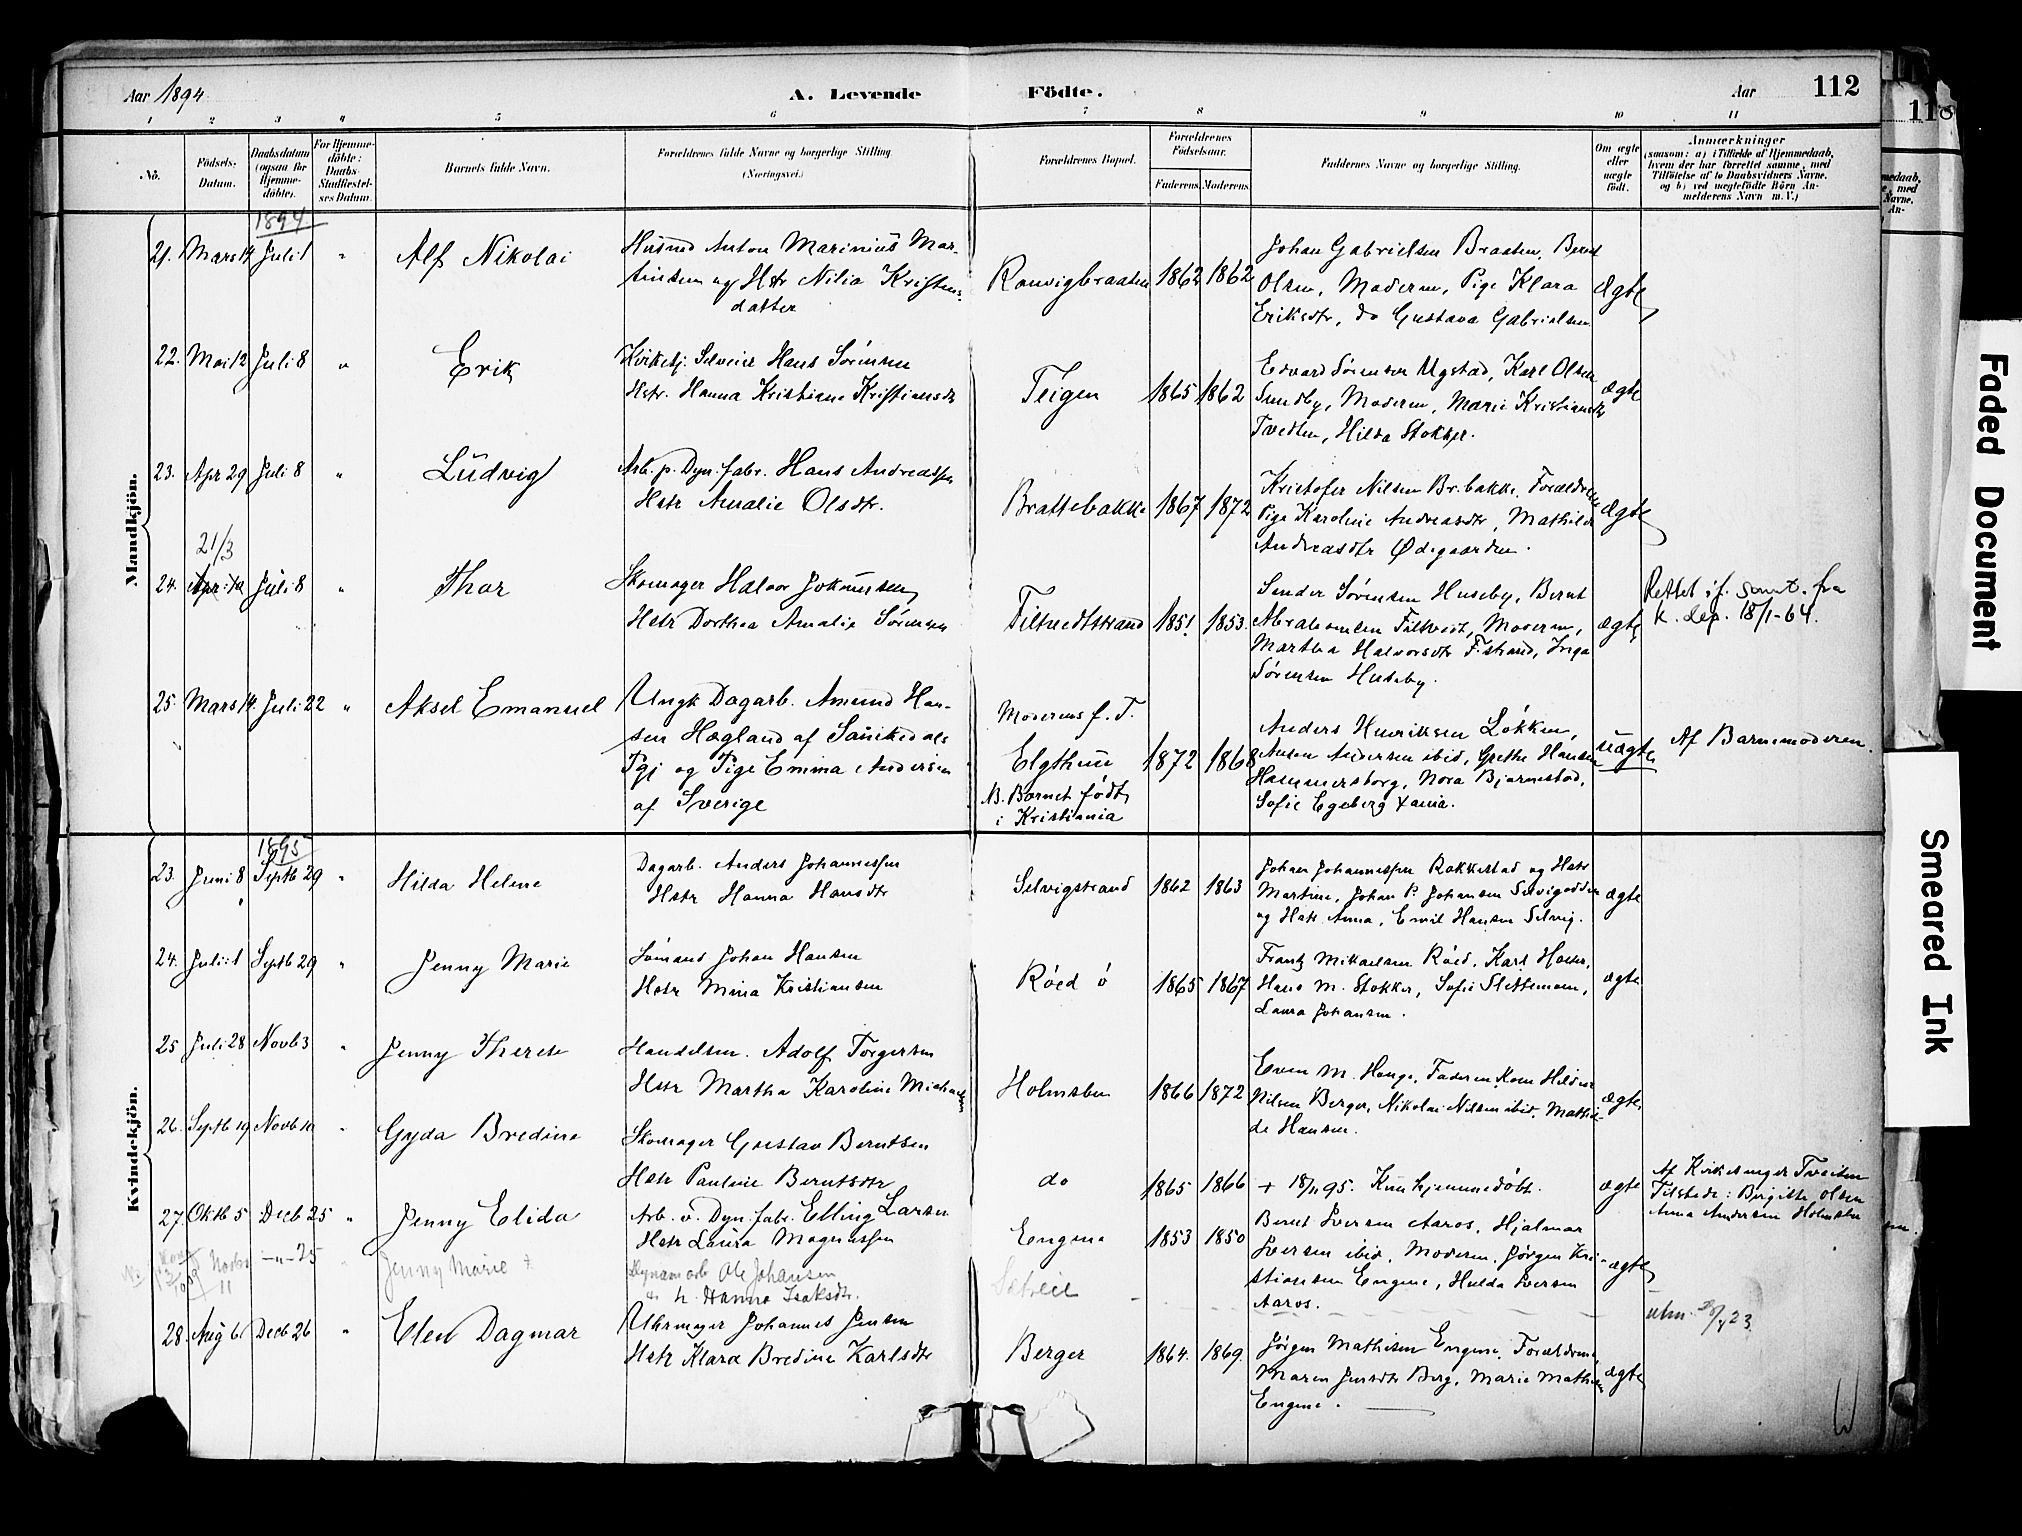 Aar 1894
A. Levende Födte.
Aar
112
118
1 2 3 4 5 6 7 8 9 10 11
No.
Födsels-Datum.
Daabsdatum (ogsaa for Hjemme-döbte).
For Hjemme-döbte: Daabs-Stadfæstel-ses Datum.
Barnets fulde Navn.
Forældrenes fulde Navne og borgerlige Stilling (Næringsvei.)
Forældrenes Bopæl.
Forældrenes Födselsaar.
Faderens
Moderens
Faddernes Navne og borgerlige Stilling.
Om ægte eller uægte födt.
Anmærkninger
(saasom: a) i Tilfælde af Hjemmedaab,
hvem der har forrettet samme, med
Tilföielse af to Daabsvidners Navne.
og b) ved uægtefödte Börn An-
melderens Navn m. V.)
Mandkjön.
1894
21. Mars 14 Juli 1 " Alf Nikolai
Husmd Anton Marinius Mar-
tinsen og Hstr Nilia Kristens-
datter
Ranvigbraaten 1862 1862
Johan Gabrielsen Braaten, Bernt
Olsen, Moderen, Pige Klara
Eriksdtr, do Gustava Gabrielsen
Ægte
22. Mai 12 Juli 8 " Erik
Kirkesj. Selveier Hans Sörensen
Hstr. Hanna Kristiane Kristiansdtr
Teigen 1865 1862
Edvard Sörensen Ugstad, Karl Olsen
Sundby, Moderen, Marie Kristiansdtr
Tvedten, Hilda Stokker.
ægte
23. Apr 29 Juli 8 " Ludvig
Arb. p. Dyn. fabr. Hans Andreassen
Hstr Amalie Olsdtr.
Brattebakke 1867 1872
Kristofer Nilsen Br.bakke, Forældrene
Pige Karoline Andreasdtr, Mathilde
Andreasdtr Ødegaarden.
Ægte
21/3
24. Apr. 10 Juli 8 " Thor
Skomager Halvor Jokumsen
Hstr Dorthea Amalie Sörensen
Filtvedtstrand 1851 1853
Sender Sørensen Huseby, Bernt
Abrahamsen Filtvedt, Moderen,
Martha Halvorsdtr F.strand, Inga
Sørensen Huseby.
ægte
Rettet if. samt. fra
K. dep. 18/1-64.
25. Mars 14. Juli 22 " Aksel Emanuel
Ungk Dagarb. Amund Han-
sen Hægland af Sannikedals
Pgj og Pige Emma Andersen
af Sverige
Moderens f. T.
Elgthun
NB. Barnet født
i Kristiania
1872 1868
Anders Henriksen Løkken,
Anton Andersen ibid, Grethe Hansen
Hammersborg, Nora Bjørnestad,
Sofie Egeberg Xania.
uægte
Af Barnemoderen.
Kvindekjön.
1895
23. Juni 8 Septb 29 " Hilda Helene
Dagarb. Anders Johannessen
Hstr Hanna Hansdtr
Selvigstrand 1862 1863
Johan Johannessen Rakkestad og Hstr
Martine, Johan P. Johansen Selvigodden
og Hstr Anna, Emil Hansen Selvig.
ægte
24. Juli 1 Septb 29 " Jenny Marie
Sømand Johan Hansen
Hstr Mina Kristiansen
Røed ö 1865 1867
Frantz Mikaelsen Røed, Karl Holter,
Hans M. Stokker, Sofie Slettemoen,
Laura Johansen.
ægte
25 Juli 28 Novb 3 " Jenny Therese
Handelsm. Adolf Torgersen
Hstr Martha Karoline Michaelsen
Holmsbu 1866 1872
Even M. Hauge, Faderen, Karen Hilde
Nilsen Berger, Nikolai Nilsen ibid, Mathil-
de Hansen.
ægte
26. Septb 19 Novb 10 " Gyda Bredine
Skomager Gustav Berntsen
Hstr Pauline Berntsdtr
do 1865 1866
+ 18/11 95. Kun hjemmedøbt.
ægte
Af Kirkesanger Tveiten
Tilstede: Birgitte Olsen
Anna Andersen Holmsbu
27. Oktb 5 Decb 25 " Jenny Elida
Arb. v. Dyn. fabr. Elling Larsen
Hstr Laura Magnussen
Engene 1853 1850
Bernt Iversen Aaros, Hjalmar
Iversen ibid, Moderen, Jørgen Kri-
stiansen Engene, Hulda Iversen
Aaros.
ægte
Novbr 11 -"- 25 Jenny Marie
Dynamarb Ole Johansen
h. Hanna Isaksdtr.
Sætreie
28. Aug 6 Decb 26 " Elen Dagmar
Uhrmager Johannes Jensen
Hstr Klara Bredine Karlsdtr
Berger 1864. 1869.
Jørgen Mathisen Engene, Forældrene,
Maren Jensdtr Berg, Marie Mathisen
Engene.
ægte
Faded Document
Smeared Ink